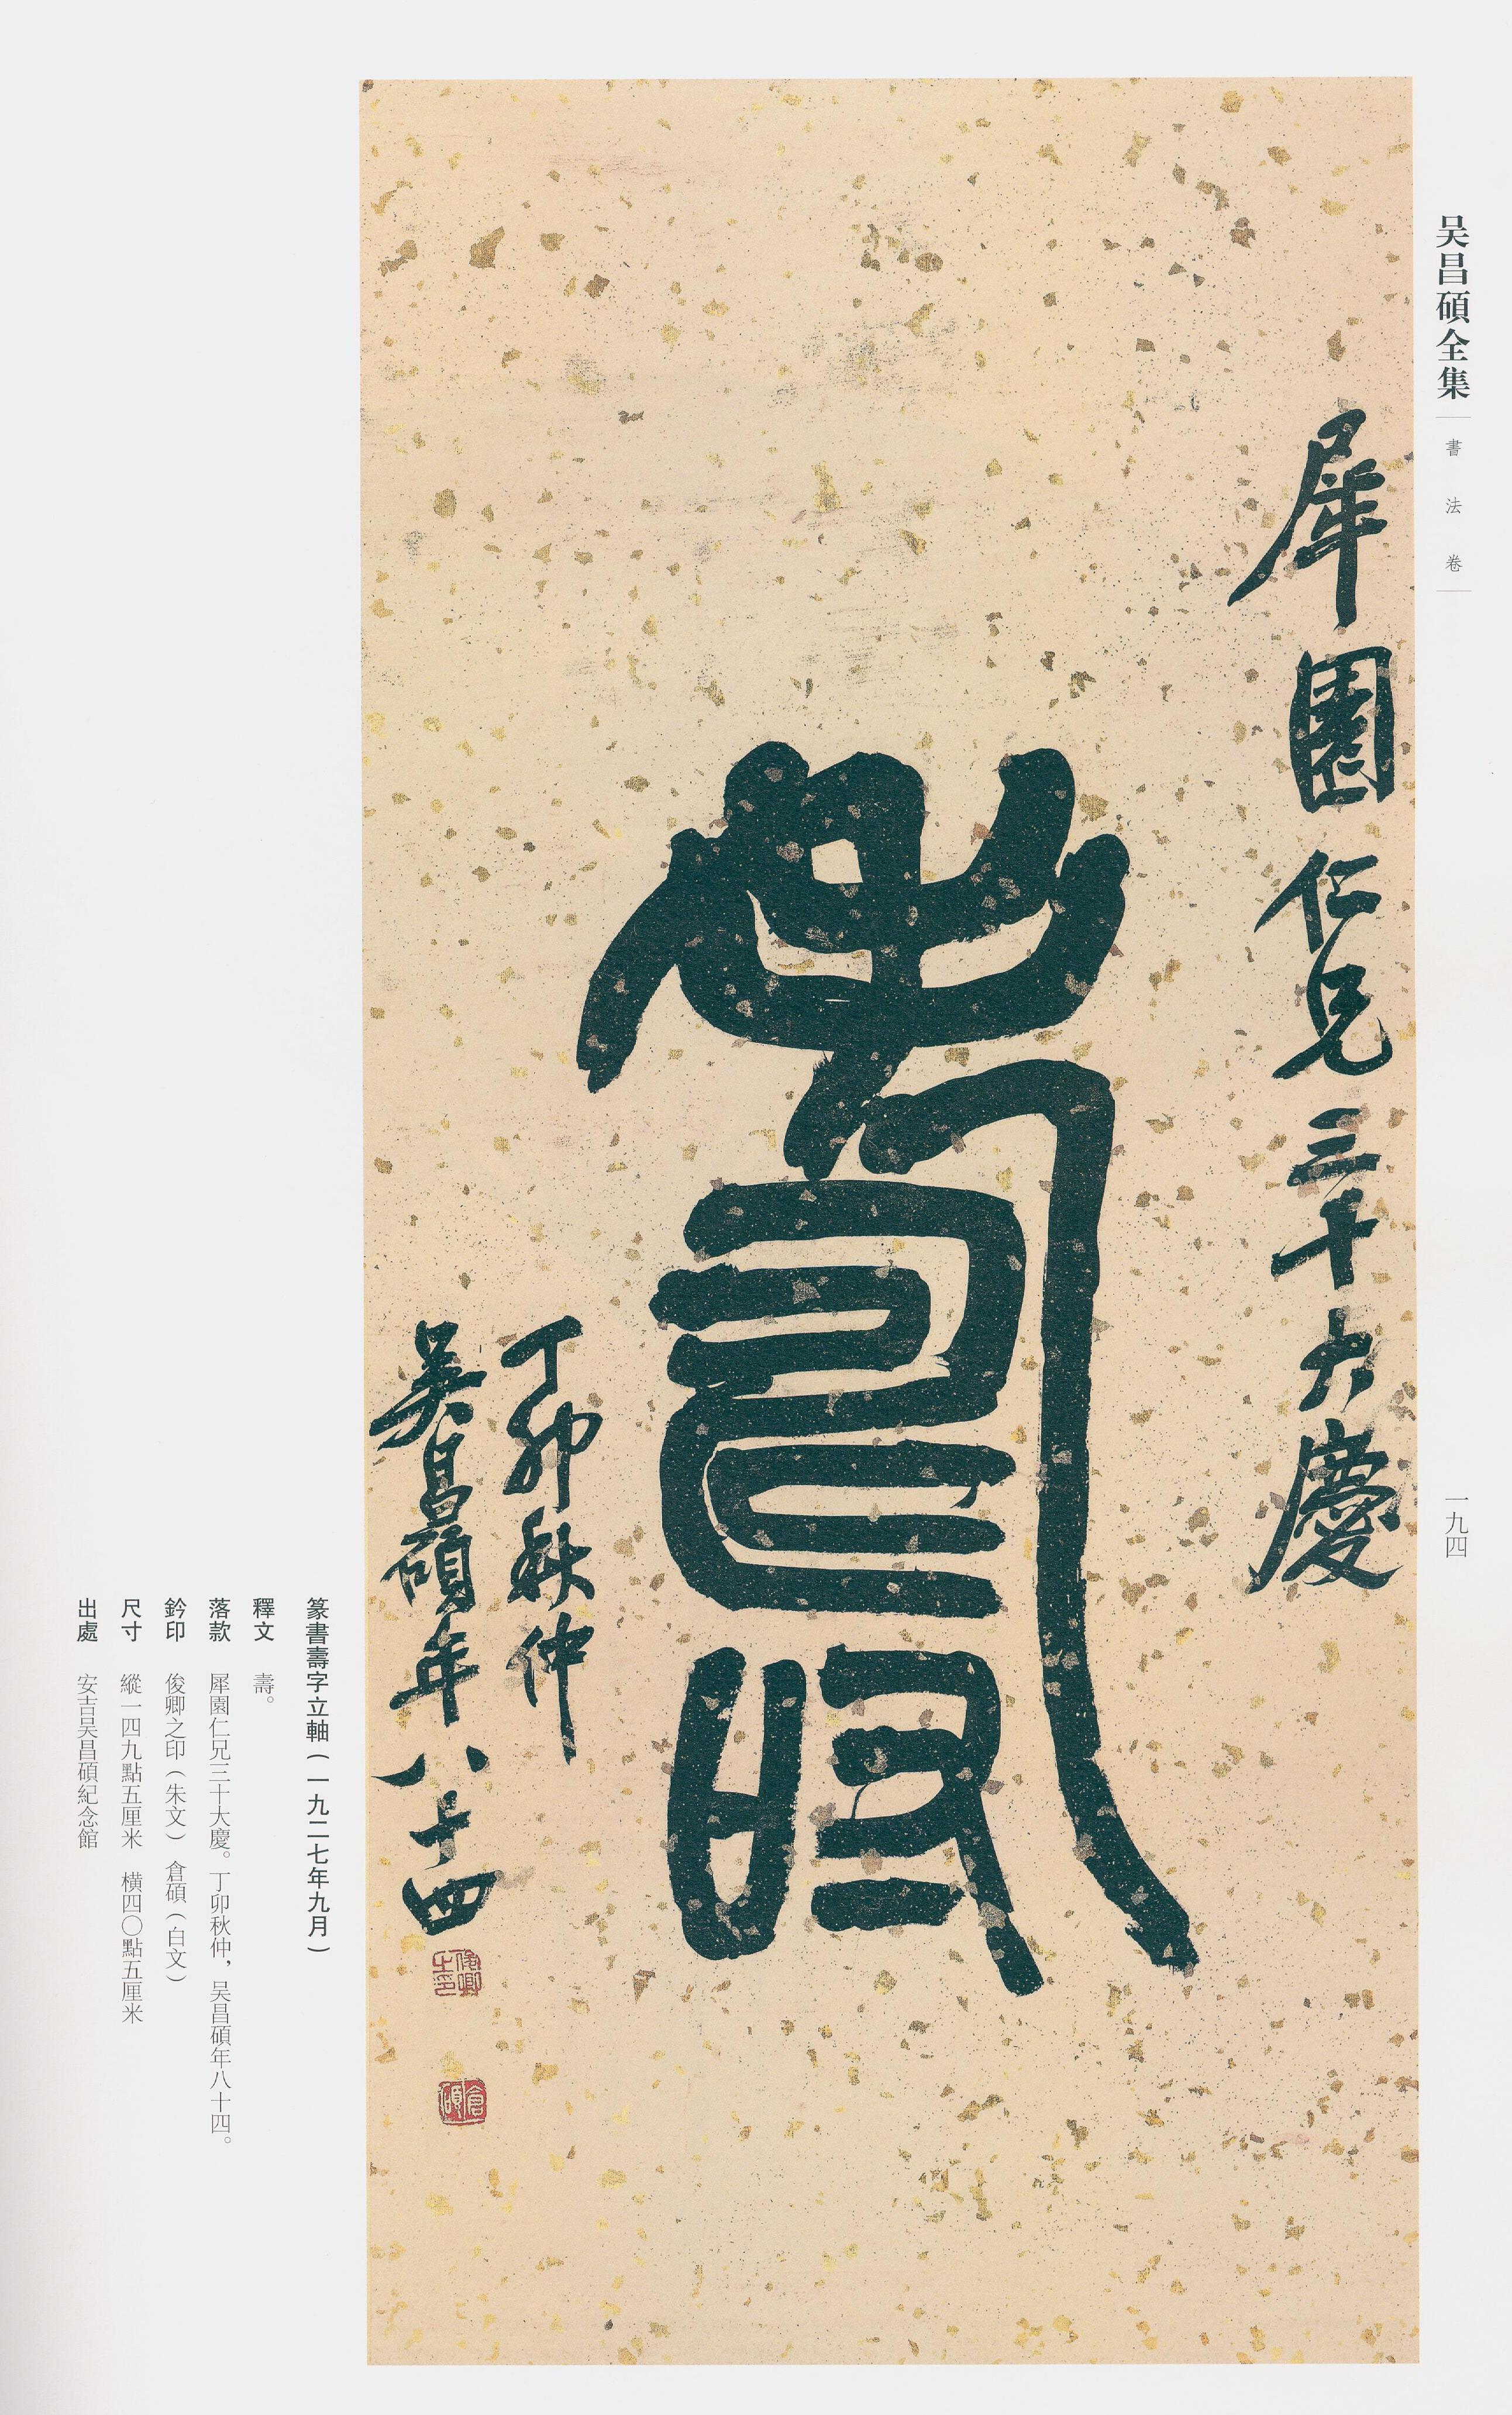 吴昌碩全集
書法卷
一九四
犀園仁兄三十大慶
壽
丁卯秋仲
吴昌碩年八十四
俊卿之印
倉碩
篆書壽字立軸（一九二七年九月）
釋文　壽。
落款　犀園仁兄三十大慶。丁卯秋仲，吴昌碩年八十四。
鈐印　俊卿之印（朱文）　倉碩（白文）
尺寸　縱一四九點五厘米　橫四〇點五厘米
出處　安吉吴昌碩紀念館